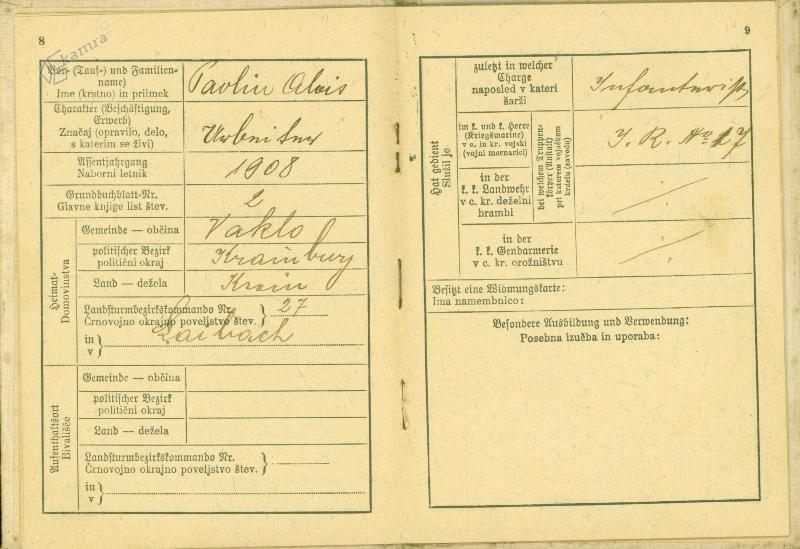 8
kamra
Vor- (Tauf-) und Familien-
name)
Ime (krstno) in priimek
Pavlin Alois
Charakter (Beschäftigung,
Erwerb)
Značaj (opravilo, delo,
s katerim se živi)
Arbeiter
Assentjahrgang
Naborni letnik
1908
Grundbuchblatt-Nr.
Glavne knjige list štev.
2
Heimat-
Domovinstva
Gemeinde — občina
Vaklo
politischer Bezirk
politični okraj
Krainburg
Land — dežela
Krain
Landsturmbezirkskommando Nr.
Črnovojno okrajno poveljstvo štev.
27
in
v
Laibach
Aufenthaltsort
Bivališče
Gemeinde — občina
politischer Bezirk
politični okraj
Land — dežela
Landsturmbezirkskommando Nr.
Črnovojno okrajno poveljstvo štev.
in
v
9
Hat gedient
Služil je
zuletzt in welcher
Charge
naposled v kateri
šarži
Infanterist
im k. und k. Heere
(Kriegsmarine)
v c. in kr. vojski
(vojni mornarici)
bei welchem Truppen-
körper (Anstalt)
pri katerem vojaškem
krdelu (zavodu)
I. R. No 17
in der
k. k. Landwehr
v c. kr. deželni
brambi
in der
k. k. Gendarmerie
v c. kr. orožništvu
Besitzt eine Widmungskarte:
Ima namembnico:
Besondere Ausbildung und Verwendung:
Posebna izučba in uporaba: